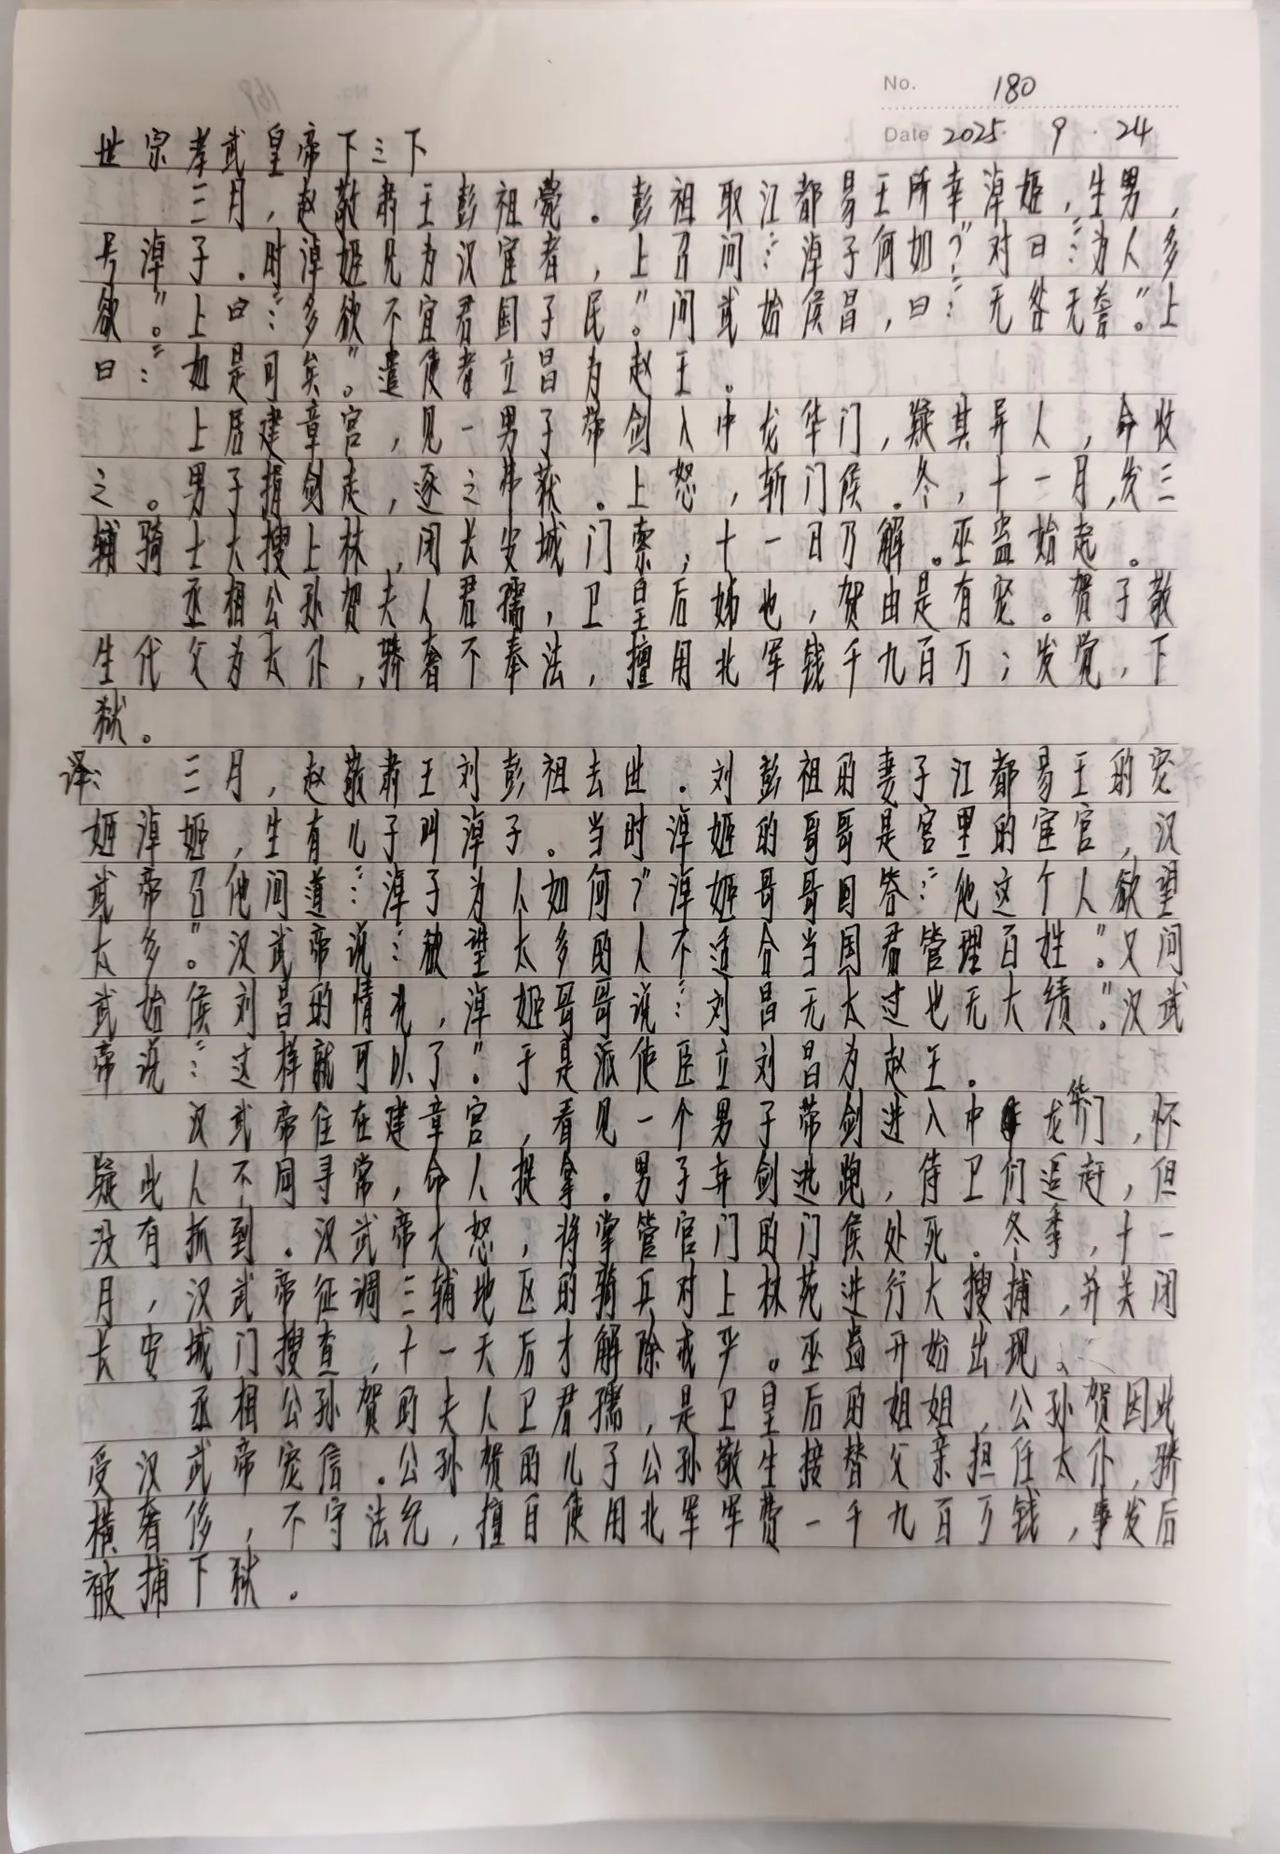 No. 180
Date 2025. 9. 24
世宗孝武皇帝下三下
三月，赵敬肃王彭祖薨。彭祖取江都易王所幸淖姬，生男，
号淖子。时淖姬兄为汉宦者，上召问：“淖子何如？”对曰：“为人多
欲”。上曰：“多欲不宜君国子民”。问武始侯昌，曰：“无咎无誉。”上
曰：“如是可矣”。遣使者立昌为赵王。
上居建章宫，见一男子带剑入中龙华门，疑其异人，命收
之。男子捐剑走，逐之弗获。上怒，斩门侯。冬，十一月，发三
辅骑士大搜上林，闭长安城门索，十一日乃解。巫蛊始起。
丞相公孙贺夫人君孺，卫皇后姊也，贺由是有宠。贺子敬
生代父为太仆，骄奢不奉法，擅用北军钱千九百万；发觉，下
狱。
译：三月，赵敬肃王刘彭祖去世。刘彭祖的妻子江都易王的宠
姬淖姬，生有儿子叫淖子。当时淖姬的哥哥是宫里的宦官，汉
武帝召他问道：“淖子为人如何？”淖姬哥哥回答：“他这个人欲望
太多”。汉武帝说：“欲望太多的人不适合当国君管理百姓。”又问
武始侯刘昌的情况，淖姬哥哥说：“刘昌无太过也无大绩。”汉武
帝说：“这样就可以了。”于是派使臣立刘昌为赵王。
汉武帝住在建章宫，看见一个男子带剑进入中龙华门，怀
疑此人不同寻常，命人捉拿。男子弃剑逃跑，侍卫们追赶，但
没有抓到。汉武帝大怒，将掌管宫门的门侯处死。冬季，十一
月，汉武帝征调三辅地区的骑兵对上林苑进行大搜捕，并关闭
长安城门搜查，十一天后才解除戒严。巫蛊开始出现。
丞相公孙贺的夫人卫君孺，是卫皇后的姐姐，公孙贺因此
受汉武帝宠信。公孙贺的儿子公孙敬生接替父亲担任太仆，骄
横奢侈，不守法纪，擅自使用北军军费一千九百万钱，事发后
被捕下狱。